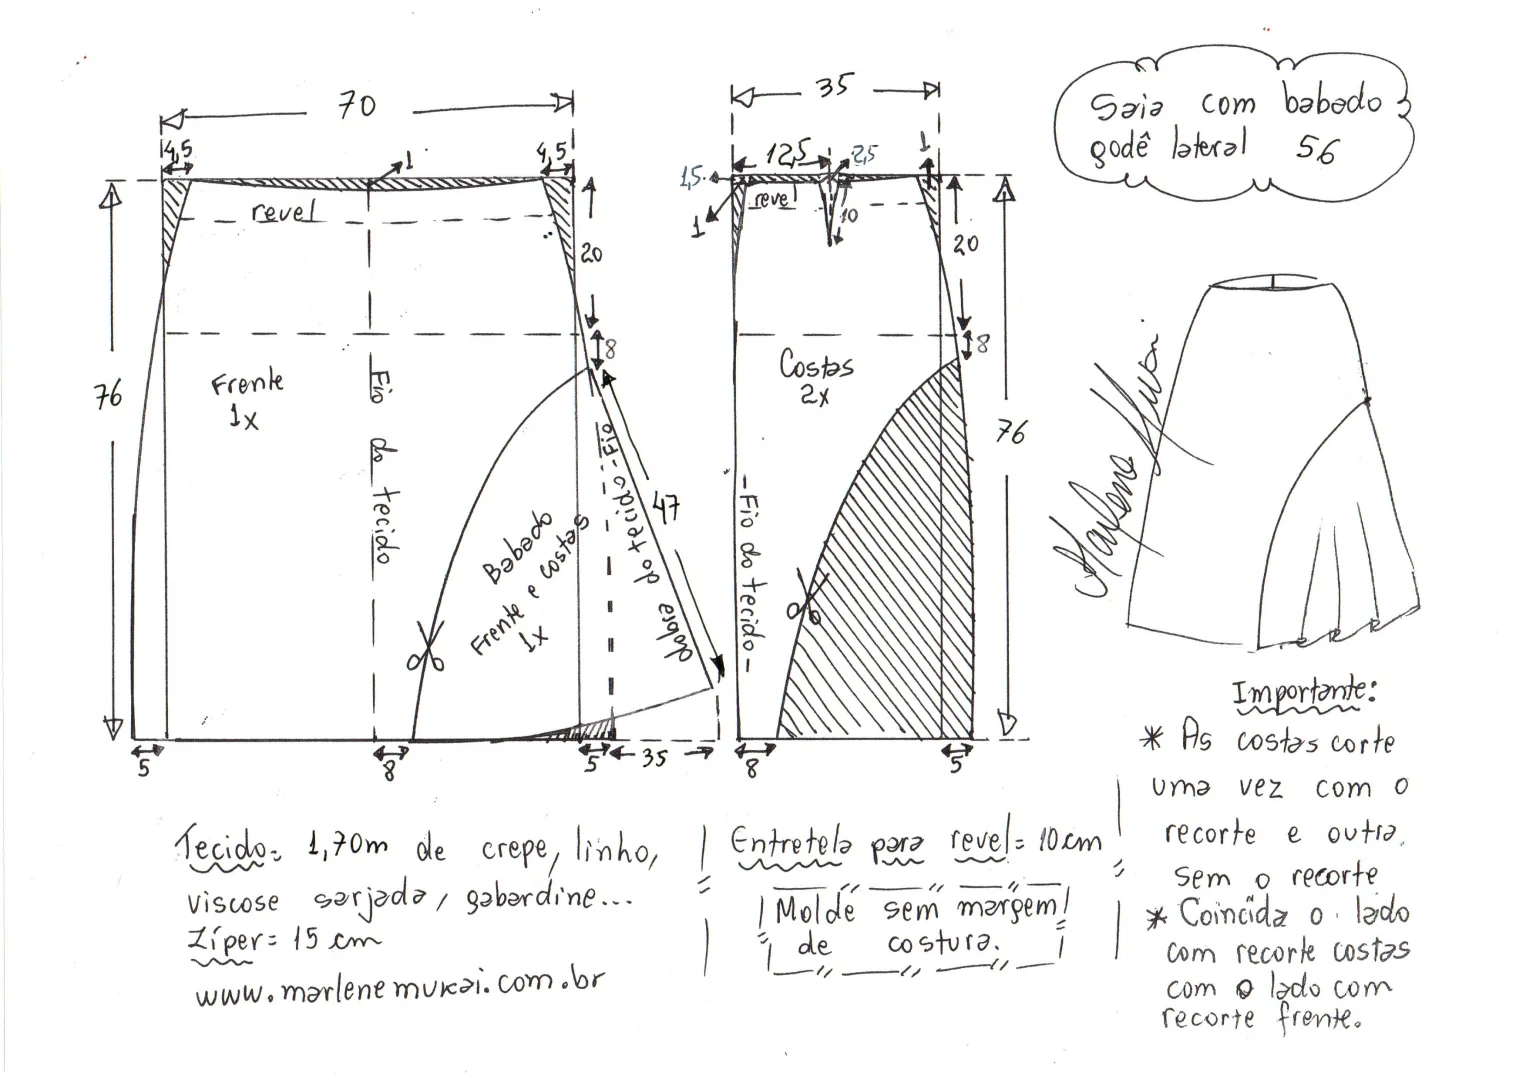 Saia com babado
godê lateral 56
70
4,5
4,5
1
revel
20
8
76
Frente
1x
Fio do tecido
Babado
Frente e costas
1x
Fio do tecido - dobra
47
5
8
5
35
35
12,5
2,5
1
1,5
1
revel
10
20
8
Costas
2x
76
- Fio do tecido -
8
5
Marlene Mukai
Tecido= 1,70m de crepe, linho,
viscose sarjada, gabardine...
Zíper= 15 cm
www.marlenemukai.com.br
Entretela para revel= 10cm
Molde sem margem
de costura.
Importante:
* As costas corte
uma vez com o
recorte e outra
sem o recorte
* Coincida o lado
com recorte costas
com o lado com
recorte frente.